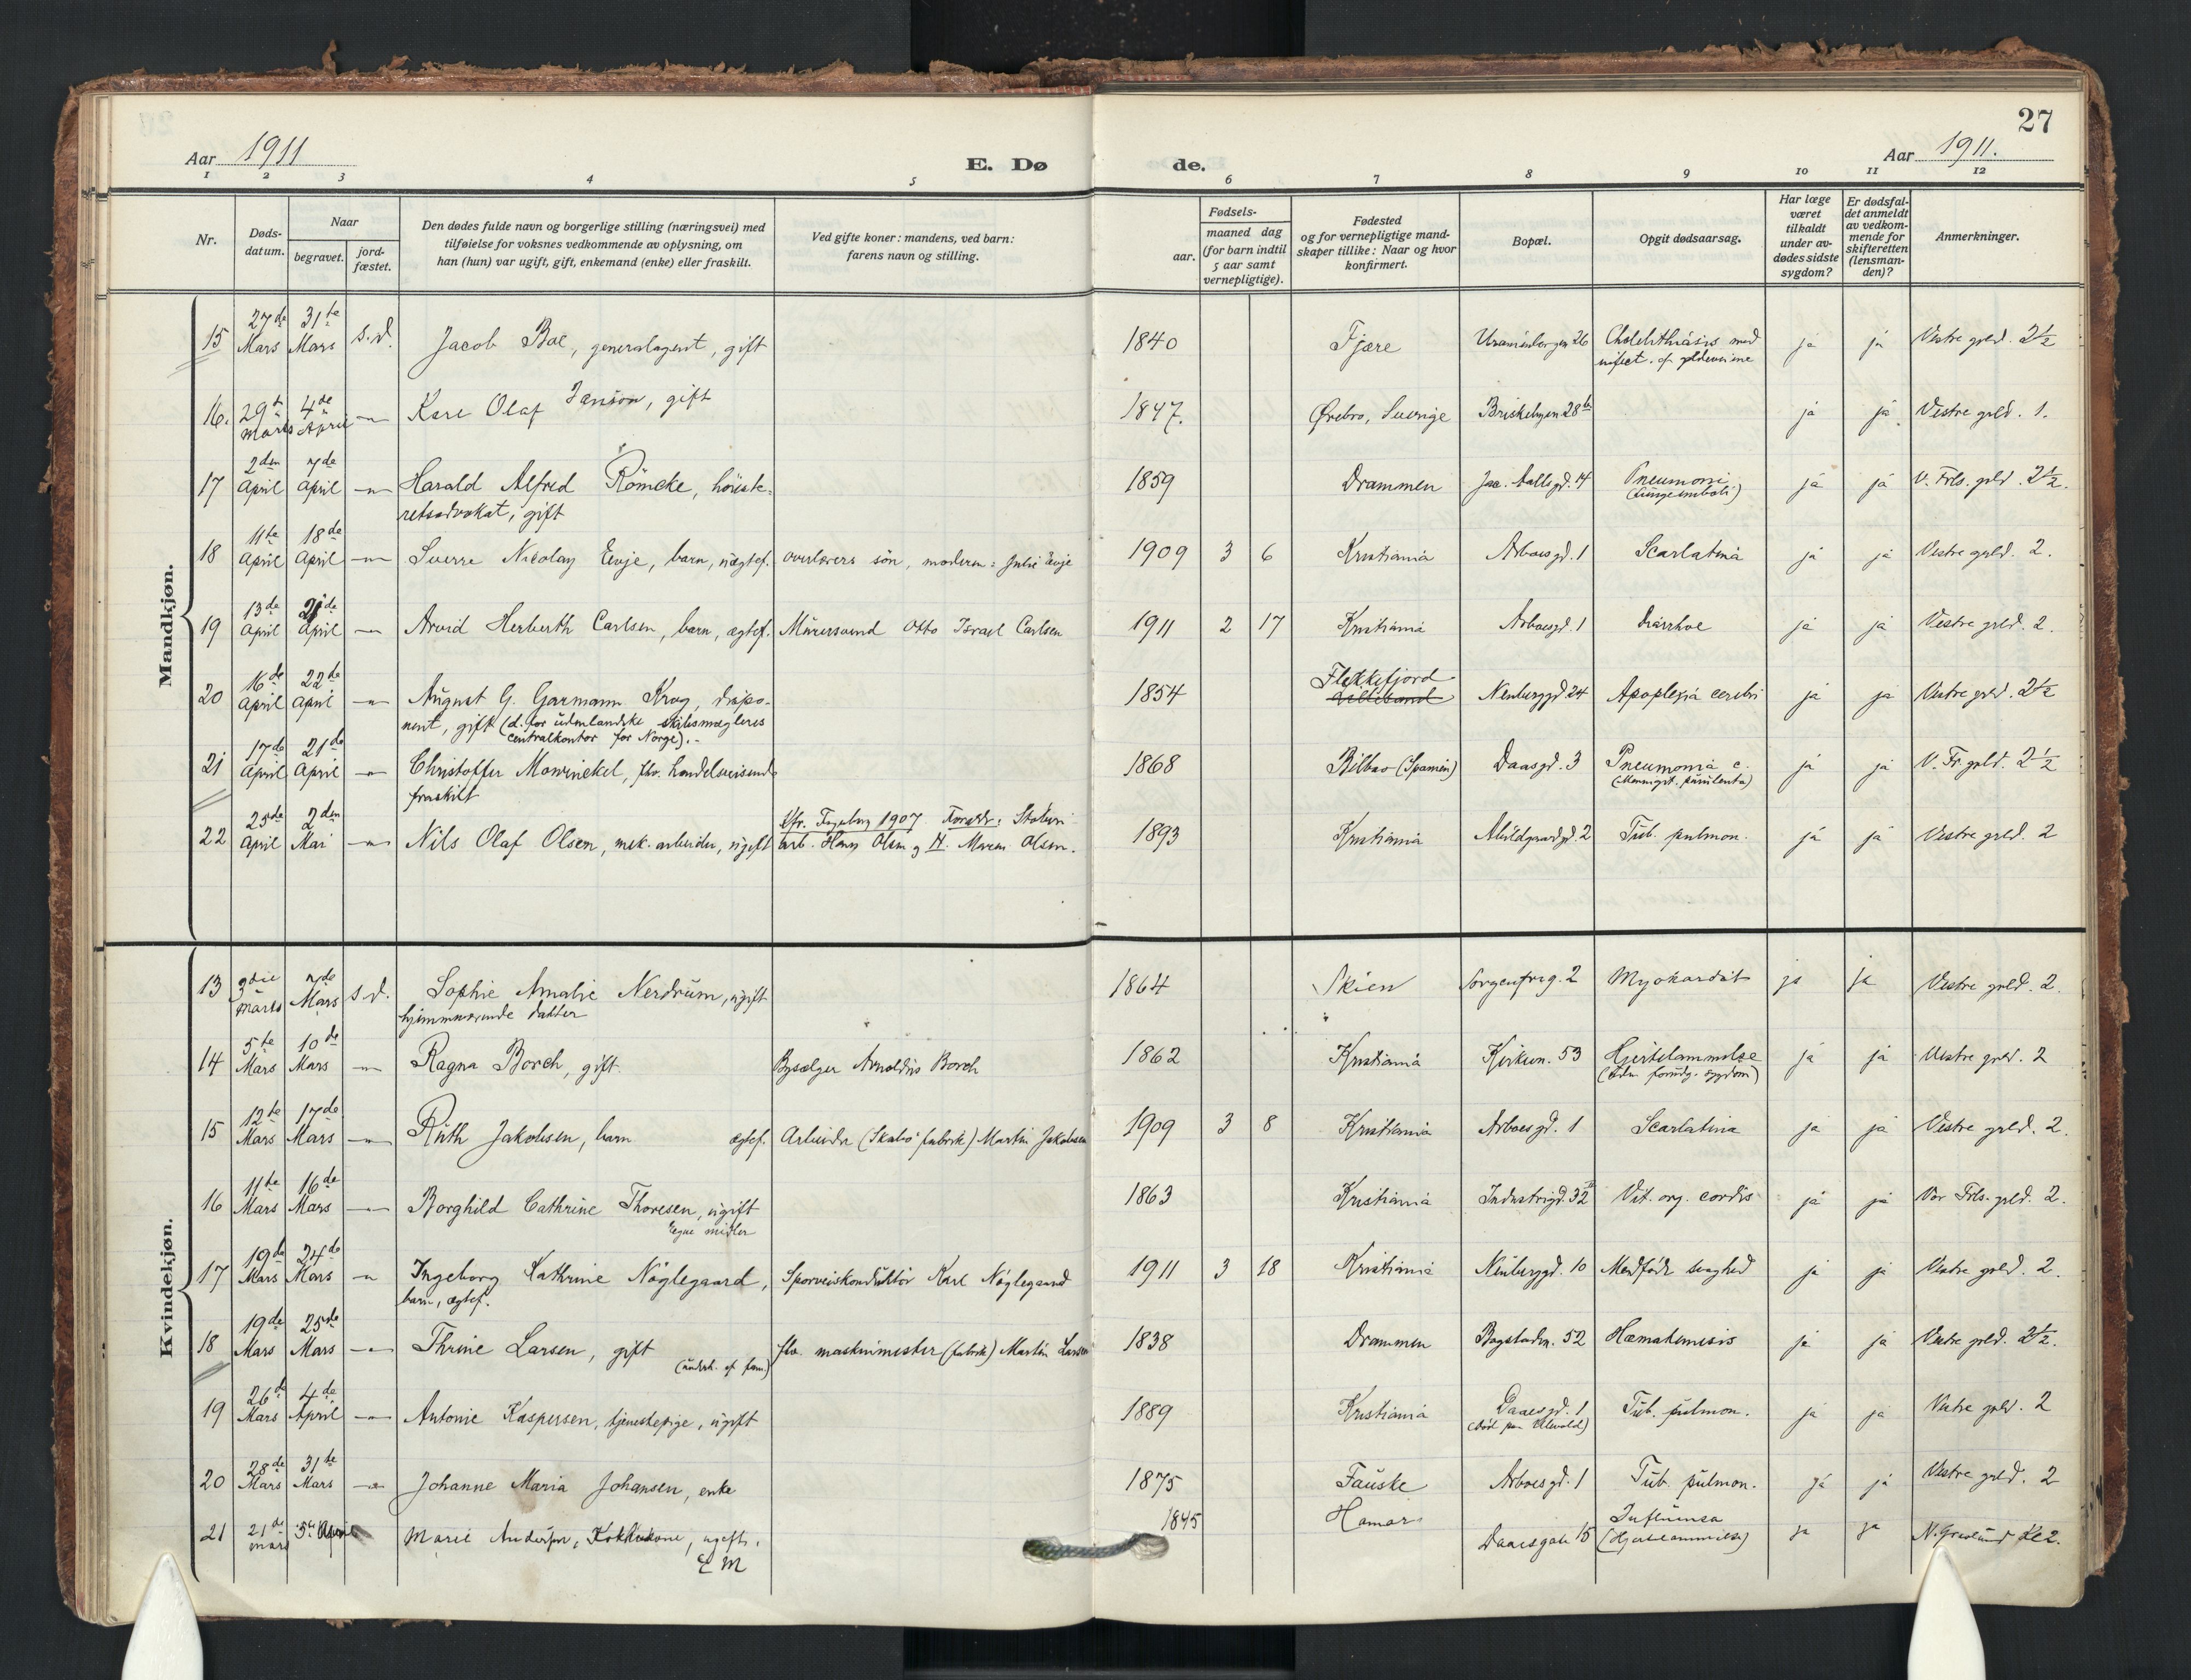 27
Aar 1911
E. Dø
de.
Aar 1911.
1 2 3 4 5 6 7 8 9 10 11 12
Nr.
Døds-
datum.
Naar
begravet.
jord-
fæstet.
Den dødes fulde navn og borgerlige stilling (næringsvei) med
tilføielse for voksnes vedkommende av oplysning, om
han (hun) var ugift, gift, enkemand (enke) eller fraskilt.
Ved gifte koner: mandens, ved barn:
farens navn og stilling.
Fødsels-
aar.
maaned dag
(for barn indtil
5 aar samt
vernepligtige).
Fødested
og for vernepligtige mand-
skaper tillike: Naar og hvor
konfirmert.
Bopæl.
Opgit dødsaarsag.
Har læge
været
tilkaldt
under av-
dødes sidste
sygdom?
Er dødsfal-
det anmeldt
av vedkom-
mende for
skifteretten
(lensman-
den)?
Anmerkninger.
Mandkjøn.
15 27de Mars 31te Mars s.d. Jacob Boe, generalagent, gift 1840 Fjære Uranienborgvn 26 ja ja Vestre grld. 2½
16. 29de Marts 4de April Karl Olaf Janson, gift 1847. Ørebro, Sverige Briskebyvn 28b ja ja Vestre grld. 1.
17 2den April 7de April Harald Alfred Römcke, höieste-
retsadvokat, gift 1859 Drammen Jac. Aallsgd. 14 Pneumoni
(Lungeemboli) ja ja V. Frls. grld. 2½.
18 11te April 18de April Sverre Nicolay Evje, barn, uægtef. overlærers sön, moderen: Julie Evje 1909 3 6 Kristiania Arboesgd. 1 Scarlatina ja ja Vestre grld. 2.
19 13de April 21de April Arvid Herberth Carlsen, barn, ægtef. Murersvend Otto Israel Carlsen 1911 2 17 Kristiania Arboesgd. 1 Diarrhoe ja ja Vestre grld. 2.
20 16de April 22de April August G. Garmann Krog, dispo-
nent, gift (d. for udenlandske skibsmægleres
centralkontor for Norge). 1854 Flekkefjord
Lillesand Neubergsgd 24 Apoplexia cerebri ja ja Vestre grld. 2½
21 17de April 21de April Christoffer Mowinckel, fhv. handelsreisende
fraskilt 1868 Bilbao (Spanien) Daasgd. 3 Pneumonia c.
(Meningit. purulenta) ja ja V. Fr. grld. 2½
22 25de April 2den Mai Nils Olaf Olsen, mek. arbeider, ugift 1907 Foreldre:
arb. Hans Olsen og H. Maren Olsen. 1893 Kristiania Abildgaardsgd. 2 Tub. pulmon. ja ja Vestre grld. 2
Kvindekjøn.
13 3die Marts 7de Mars s.d. Sophie Amalie Nerdrum, ugift
hjemmeværende datter 1864 Skien Sorgenfrig. 2 Myokardit ja ja Vestre grld. 2.
14 5te Mars 10de Mars Ragna Borch, gift. Bysælger Arnoldus Borch 1862 Kristiania Kirkevn. 53 Hjertelammelse ja ja Vestre grld. 2
15 12te Mars 17de Mars Ruth Jakobsen, barn ægtef. Arbeider (Skabo fabrik) Martin Jakobsen 1909 3 8 Kristiania Arboesgd. 1 Scarlatina ja ja Vestre grld. 2.
16 11te Mars 16de Mars Borghild Cathrine Thoresen, ugift
Egne midler 1863 Kristiania Industrigd. 32 Vit. org. cordis ja ja Vor Frls. grld. 2.
17 19de Mars 24de Mars Ingeborg Kathrine Nöglegaard,
barn, ægtef. Sporveiskonduktör Karl Nöglegaard 1911 3 18 Kristiania Neubergsgd. 10 Medfödt svaghed ja ja Vestre grld. 2.
18 19de Mars 25de Mars Thrine Larsen, gift
(underh. af fam.) fhv. maskinmester (fabrik) Martin Larsen 1838 Drammen Bogstadvn. 52 Hæmatemesis ja ja Vestre grld. 2½.
19 26de Mars 4de April Antonie Kaspersen, tjenestepige, ugift 1889 Kristiania Daaesgd. 1
(död paa Ullevold) Tub. pulmon. ja ja Vestre grld. 2
20 28de Mars 31te Mars Johanne Maria Johansen, enke 1875 Fauske Arboesgd. 1 Tub. pulmon. ja ja Vestre grld. 2
21 21de mars 5te April Marie Andersen, Kokkekone, ugift.
E M 1845 Hamar Daaesgate 15 Influensa
(Hjertelammelse) ja ja N. Gravlund Kl 2.